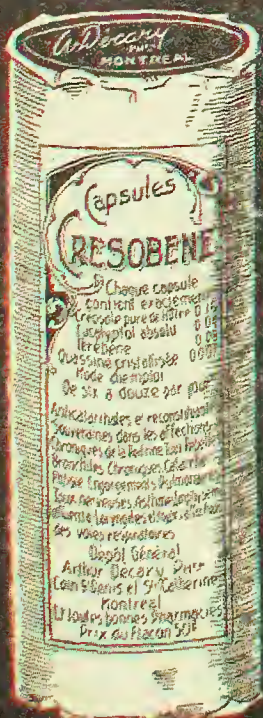 A. Decary
PHⁿ
MONTREAL
Capsules
CRESOBENE
Chaque capsule
contient exactement
Creosote pure de hêtre
Eucalyptol absolu
Terebene
Quassine cristallisée
Mode d'emploi
De six à douze par jour
Anticatarrhales et reconstituantes
Souveraines dans les affections
Chroniques de la Poitrine Toux Rebelles
Bronchites Chroniques, Catarrhe
Phtisie Engorgements Pulmonaires
Toux nerveuses, Asthme
des voies respiratoires
Dépôt Général
Arthur Decary Phⁿ
Coin St Denis et Ste Catherine
Montreal
Et toutes bonnes Pharmacies
Prix du Flacon 50¢